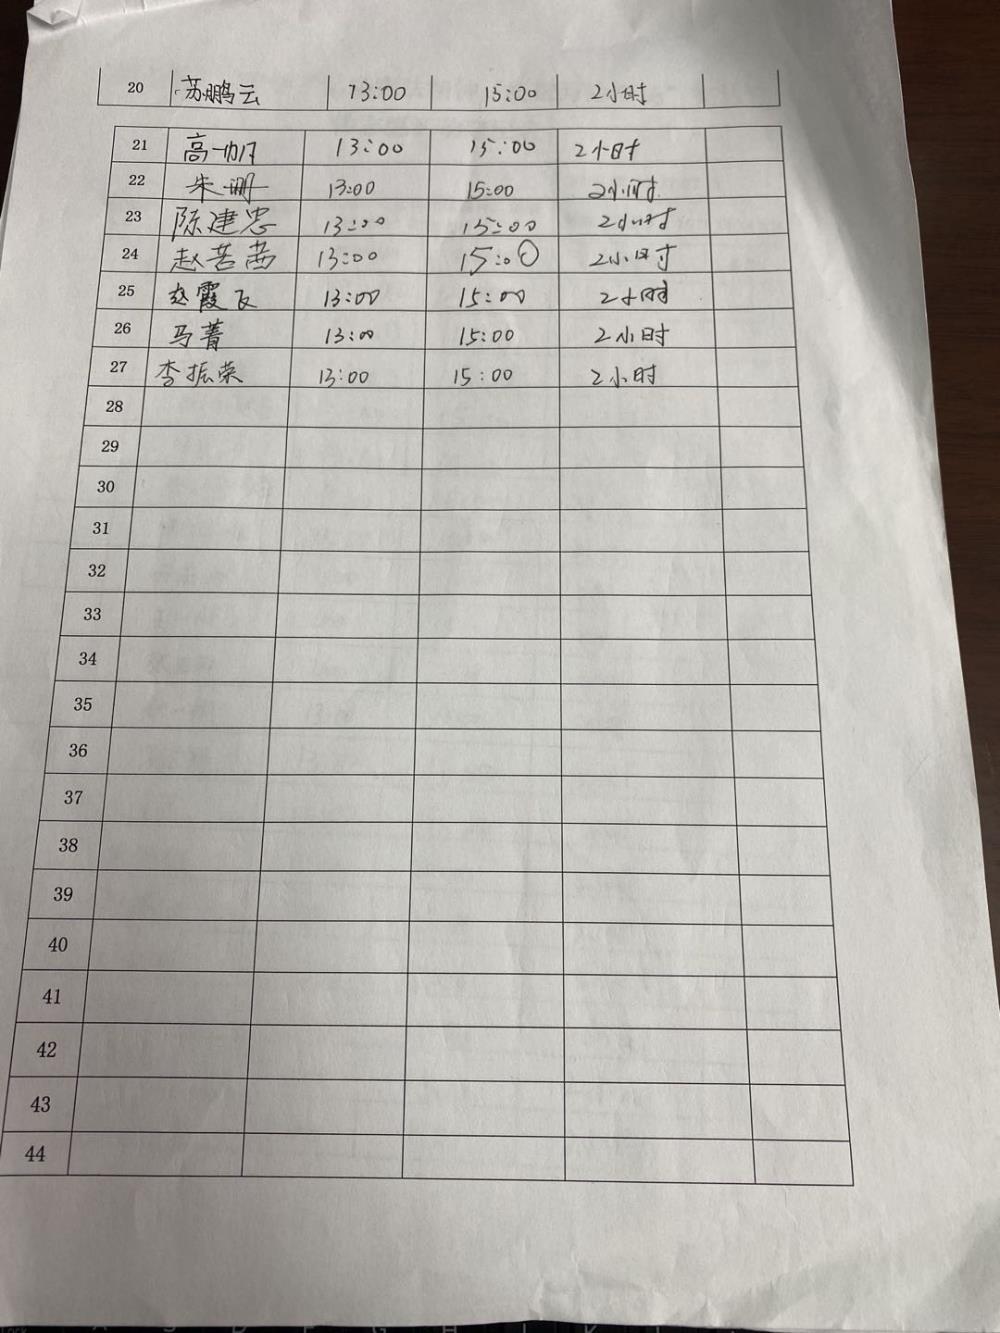 20 苏鹏云 13:00 15:00 2小时
21 高 13:00 15:00 2小时
22 朱珊 13:00 15:00 2小时
23 陈建忠 13:00 15:00 2小时
24 赵苦茜 13:00 15:00 2小时
25 赵霞飞 13:00 15:00 2小时
26 马菁 13:00 15:00 2小时
27 李振荣 13:00 15:00 2小时
28
29
30
31
32
33
34
35
36
37
38
39
40
41
42
43
44